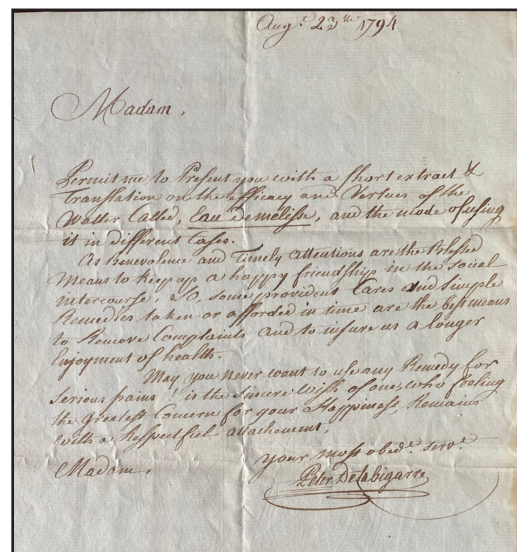 Augt 23th 1794
Madam,
Permit me to Present you with a short extract &
translation on the efficacy and Vertues of the
Watter Called, Eau De melisse, and the mode of using
it in different Cases.
As Benevolence and Timely attentions are the Blessed
Means to keep up a happy friendship in the Social
intercourse; So, some provident Cares and simple
Remedies taken or afforded in time are the best means
to Remove Complaints and to insure us a longer
Enjoyment of health.
May you never want to use any Remedy for
Serious pains! is the Sincere Wish of one, who feeling
the Greatest Concern for your Happiness, Remains
with a Respectful attachement.
Madam,
your most obedt. servt.
Peter Delabigarre